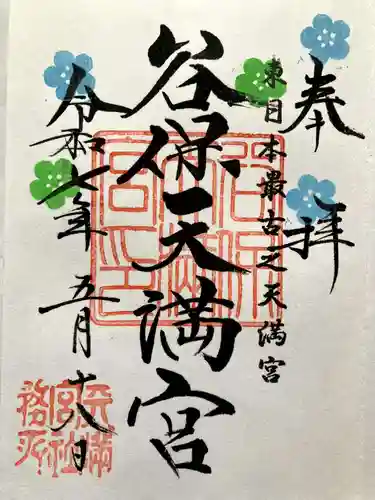 奉拝
東日本最古之天満宮
谷保天満宮
令和七年五月十八日
天満
宮社
務所